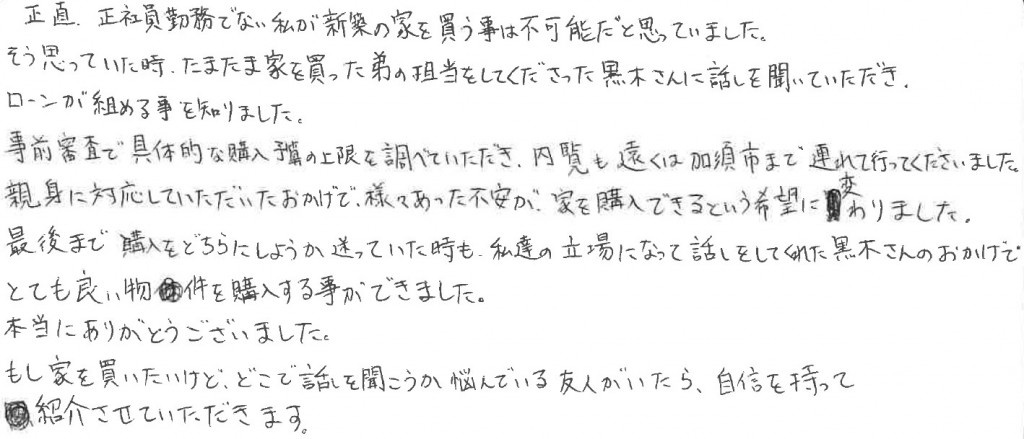 正直、正社員勤務でない私が新築の家を買う事は不可能だと思っていました。
そう思っていた時、たまたま家を買った弟の担当をしてくださった黒木さんに話しを聞いていただき、
ローンが組める事を知りました。
事前審査で具体的な購入予算の上限を調べていただき、内覧も遠くは加須市まで連れて行ってくださいました。
親身に対応していただいたおかげで、様々あった不安が、家を購入できるという希望に変わりました。
最後まで購入をどちらにしようか迷っていた時も、私達の立場になって話しをしてくれた黒木さんのおかげで
とても良い物件を購入する事ができました。
本当にありがとうございました。
もし家を買いたいけど、どこで話しを聞こうか悩んでいる友人がいたら、自信を持って
紹介させていただきます。